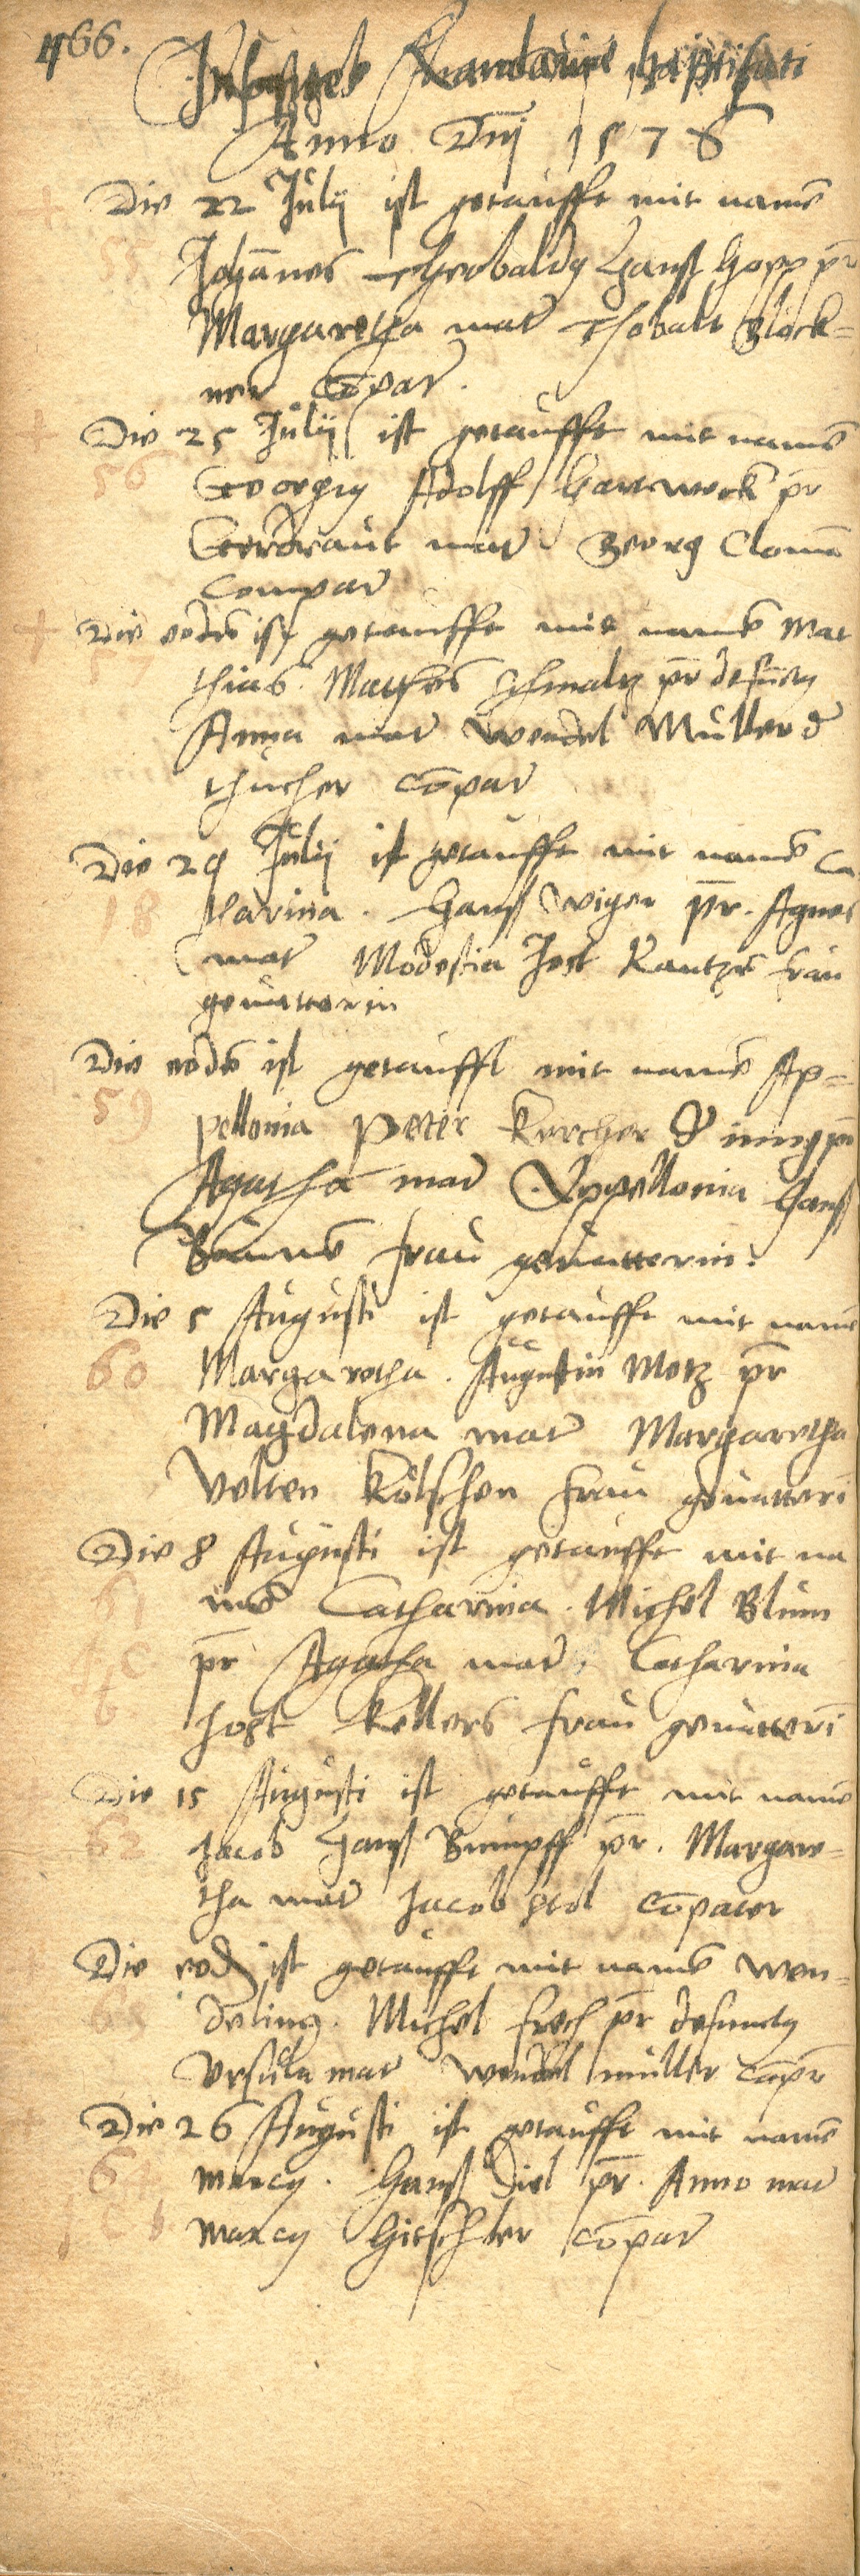 466.
Infantes Kandaviae baptisati
Anno Dnj 1578
Die 22 Julij ist getaufft mit namē
55
Johānes Theobaldy Hanß Hopp pr̄
Margaretha mat Thobalt Block=
ner Cōpar.
Die 25 Julij ist getaufft mit namē
56
Georgiy Adolff Hartweck pr̄
Gerdraut mat Georg Clomā
Compar
Die eodē ist getaufft mit namē Mat
57
thias. Mathes Schmaltz pr̄ defūcty
Anna mat Wendel Müller d
thucher cōpar
Die 29 Julij ist getaufft mit namē Ca
58
tharina. Hanß Wiger pr̄. Agnes
mat Modestia Jost Kantzē frau
gevatterin
Die eodē ist getaufft mit namē Ap=
59
pellonia Peter Kercher d iung pr̄
Agatha mat Appellonia Hanß
Baumē frau gevatterin.
Die 5 Augusti ist getaufft mit namē
60
Margaretha. Augustin Motz pr̄
Magdalena mat Margaretha
Velten Kölschen frau gevatterī
Die 8 Augusti ist getaufft mit na
61
mē Catharina. Michel Blum
pr̄ Agatha mat, Catharina
Jost Kellers frau gevatterī
Die 15 Augusti ist getaufft mit namē
62
Jacob Hanß Bumpff pr̄. Margare=
tha mat Jacob stol cōpater
Die eod ist getaufft mit namē Wen=
63
deling. Michel frech pr̄ defuncty
Ursula mat Wendel müller cōpr̄
Die 26 Augusti ist getaufft mit namē
64
marcy. Hanß Diel pr̄. Anno mat
marcy Hirschler cōpar